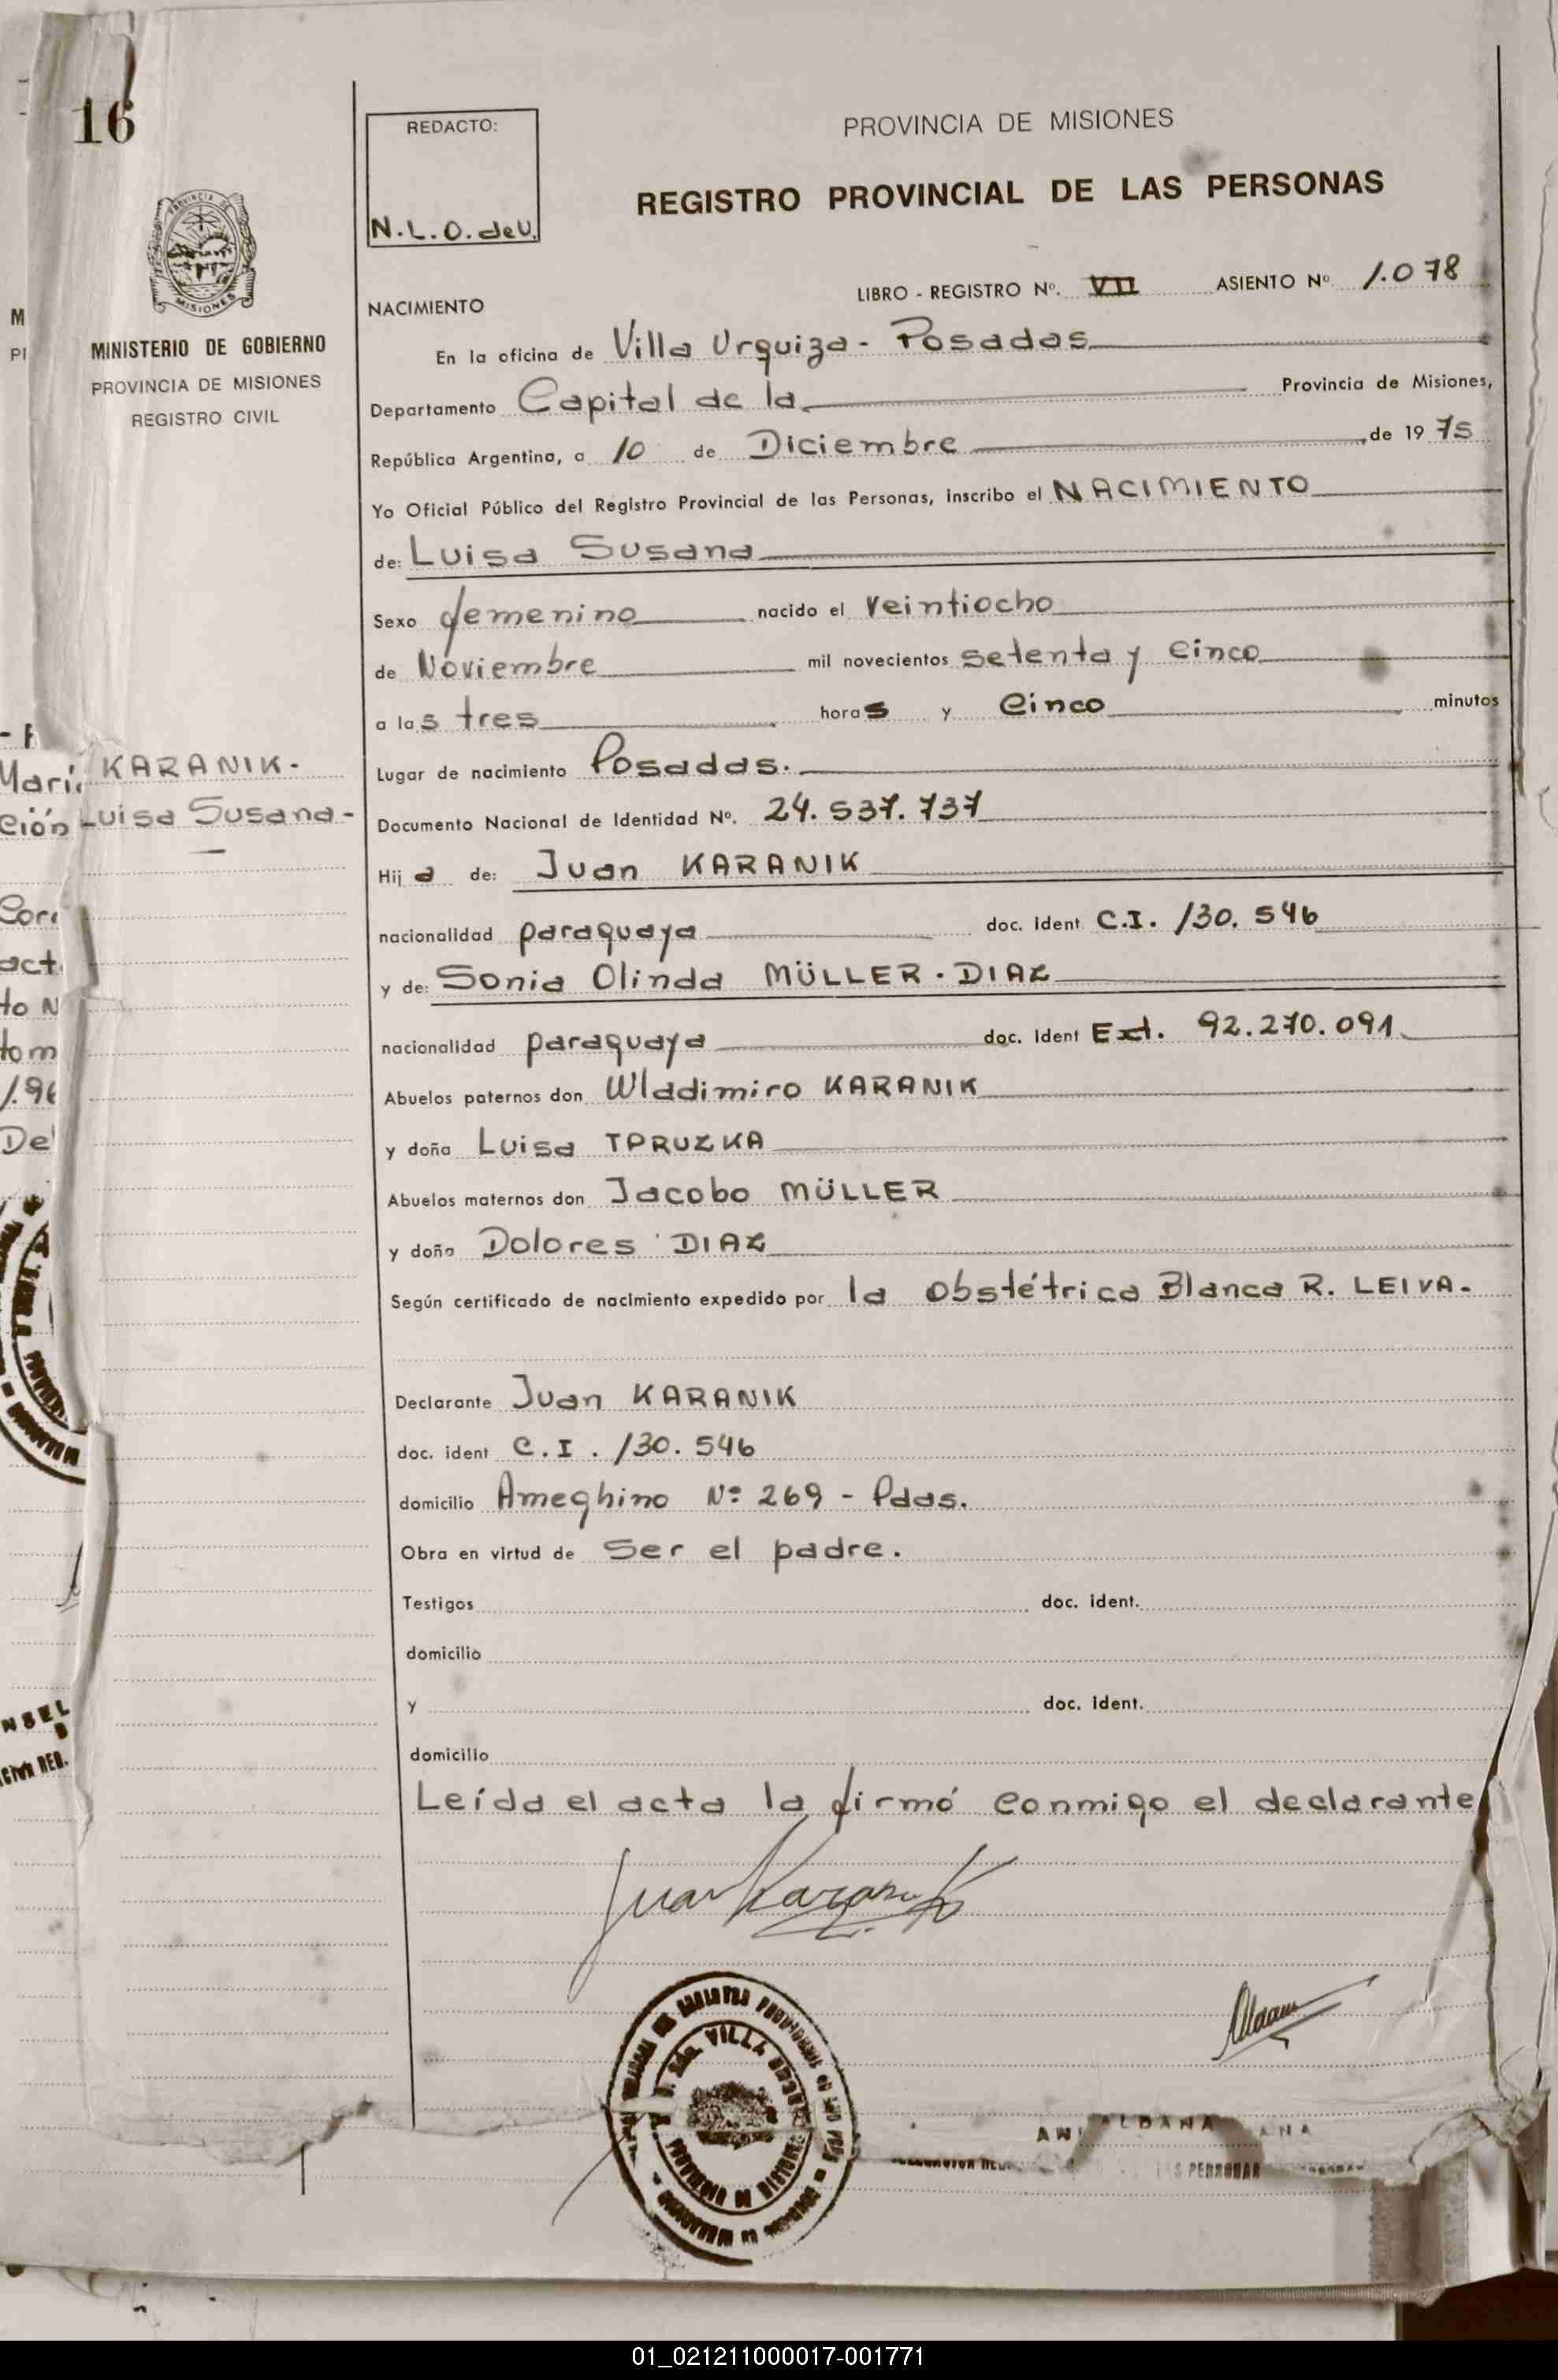 16
REDACTO:
N.L.O. deU.
PROVINCIA DE MISIONES
REGISTRO PROVINCIAL DE LAS PERSONAS
MISIONES
MINISTERIO DE GOBIERNO
PROVINCIA DE MISIONES
REGISTRO CIVIL
KARANIK.-
Luisa Susana-
NACIMIENTO
LIBRO - REGISTRO Nº. VII ASIENTO Nº 1.078
En la oficina de Villa Urquiza - Posadas
Departamento Capital de la Provincia de Misiones,
República Argentina, a 10 de Diciembre de 1975
Yo Oficial Público del Registro Provincial de las Personas, inscribo el NACIMIENTO
de: Luisa Susana
Sexo femenino nacido el veintiocho
de Noviembre mil novecientos setenta y cinco
a las tres horas y cinco minutos
Lugar de nacimiento Posadas.
Documento Nacional de Identidad Nº. 24.537.737
Hija de: Juan KARANIK
nacionalidad paraguaya doc. ident C.I. 130.546
y de: Sonia Olinda MÜLLER - DIAZ
nacionalidad paraguaya doc. ident Ext. 92.270.091
Abuelos paternos don Wladimiro KARANIK
y doña Luisa TPRUZKA
Abuelos maternos don Jacobo MÜLLER
y doña Dolores DIAZ
Según certificado de nacimiento expedido por la obstétrica Blanca R. LEIVA.-
Declarante Juan KARANIK
doc. ident C.I. 130.546
domicilio Ameghino Nº 269 - Pdas.
Obra en virtud de ser el padre.
Testigos doc. ident.
domicilio
y doc. ident.
domicilio
Leída el acta la firmó conmigo el declarante
Juan Karanik
VILLA
ALDANA
PERSONAS
01_021211000017-001771